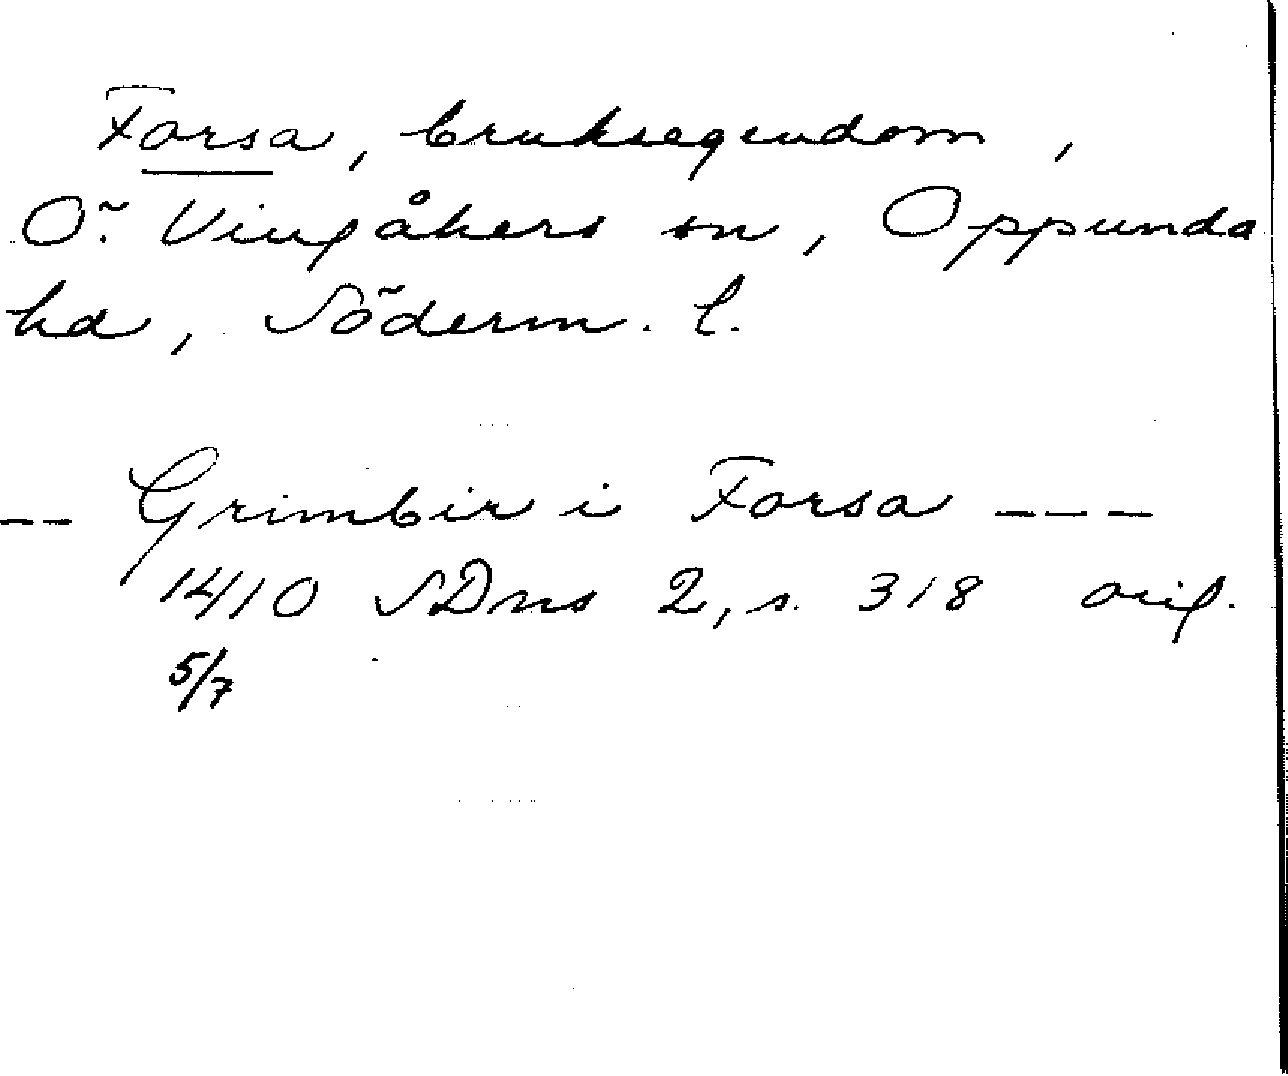 Forsa, bruksegendom,
Ö. Vingåkers sn, Oppunda
hd, Söderm. l.
-- Grimbir i Forsa ---
1410 SDns 2, s. 318 orig.
5/7